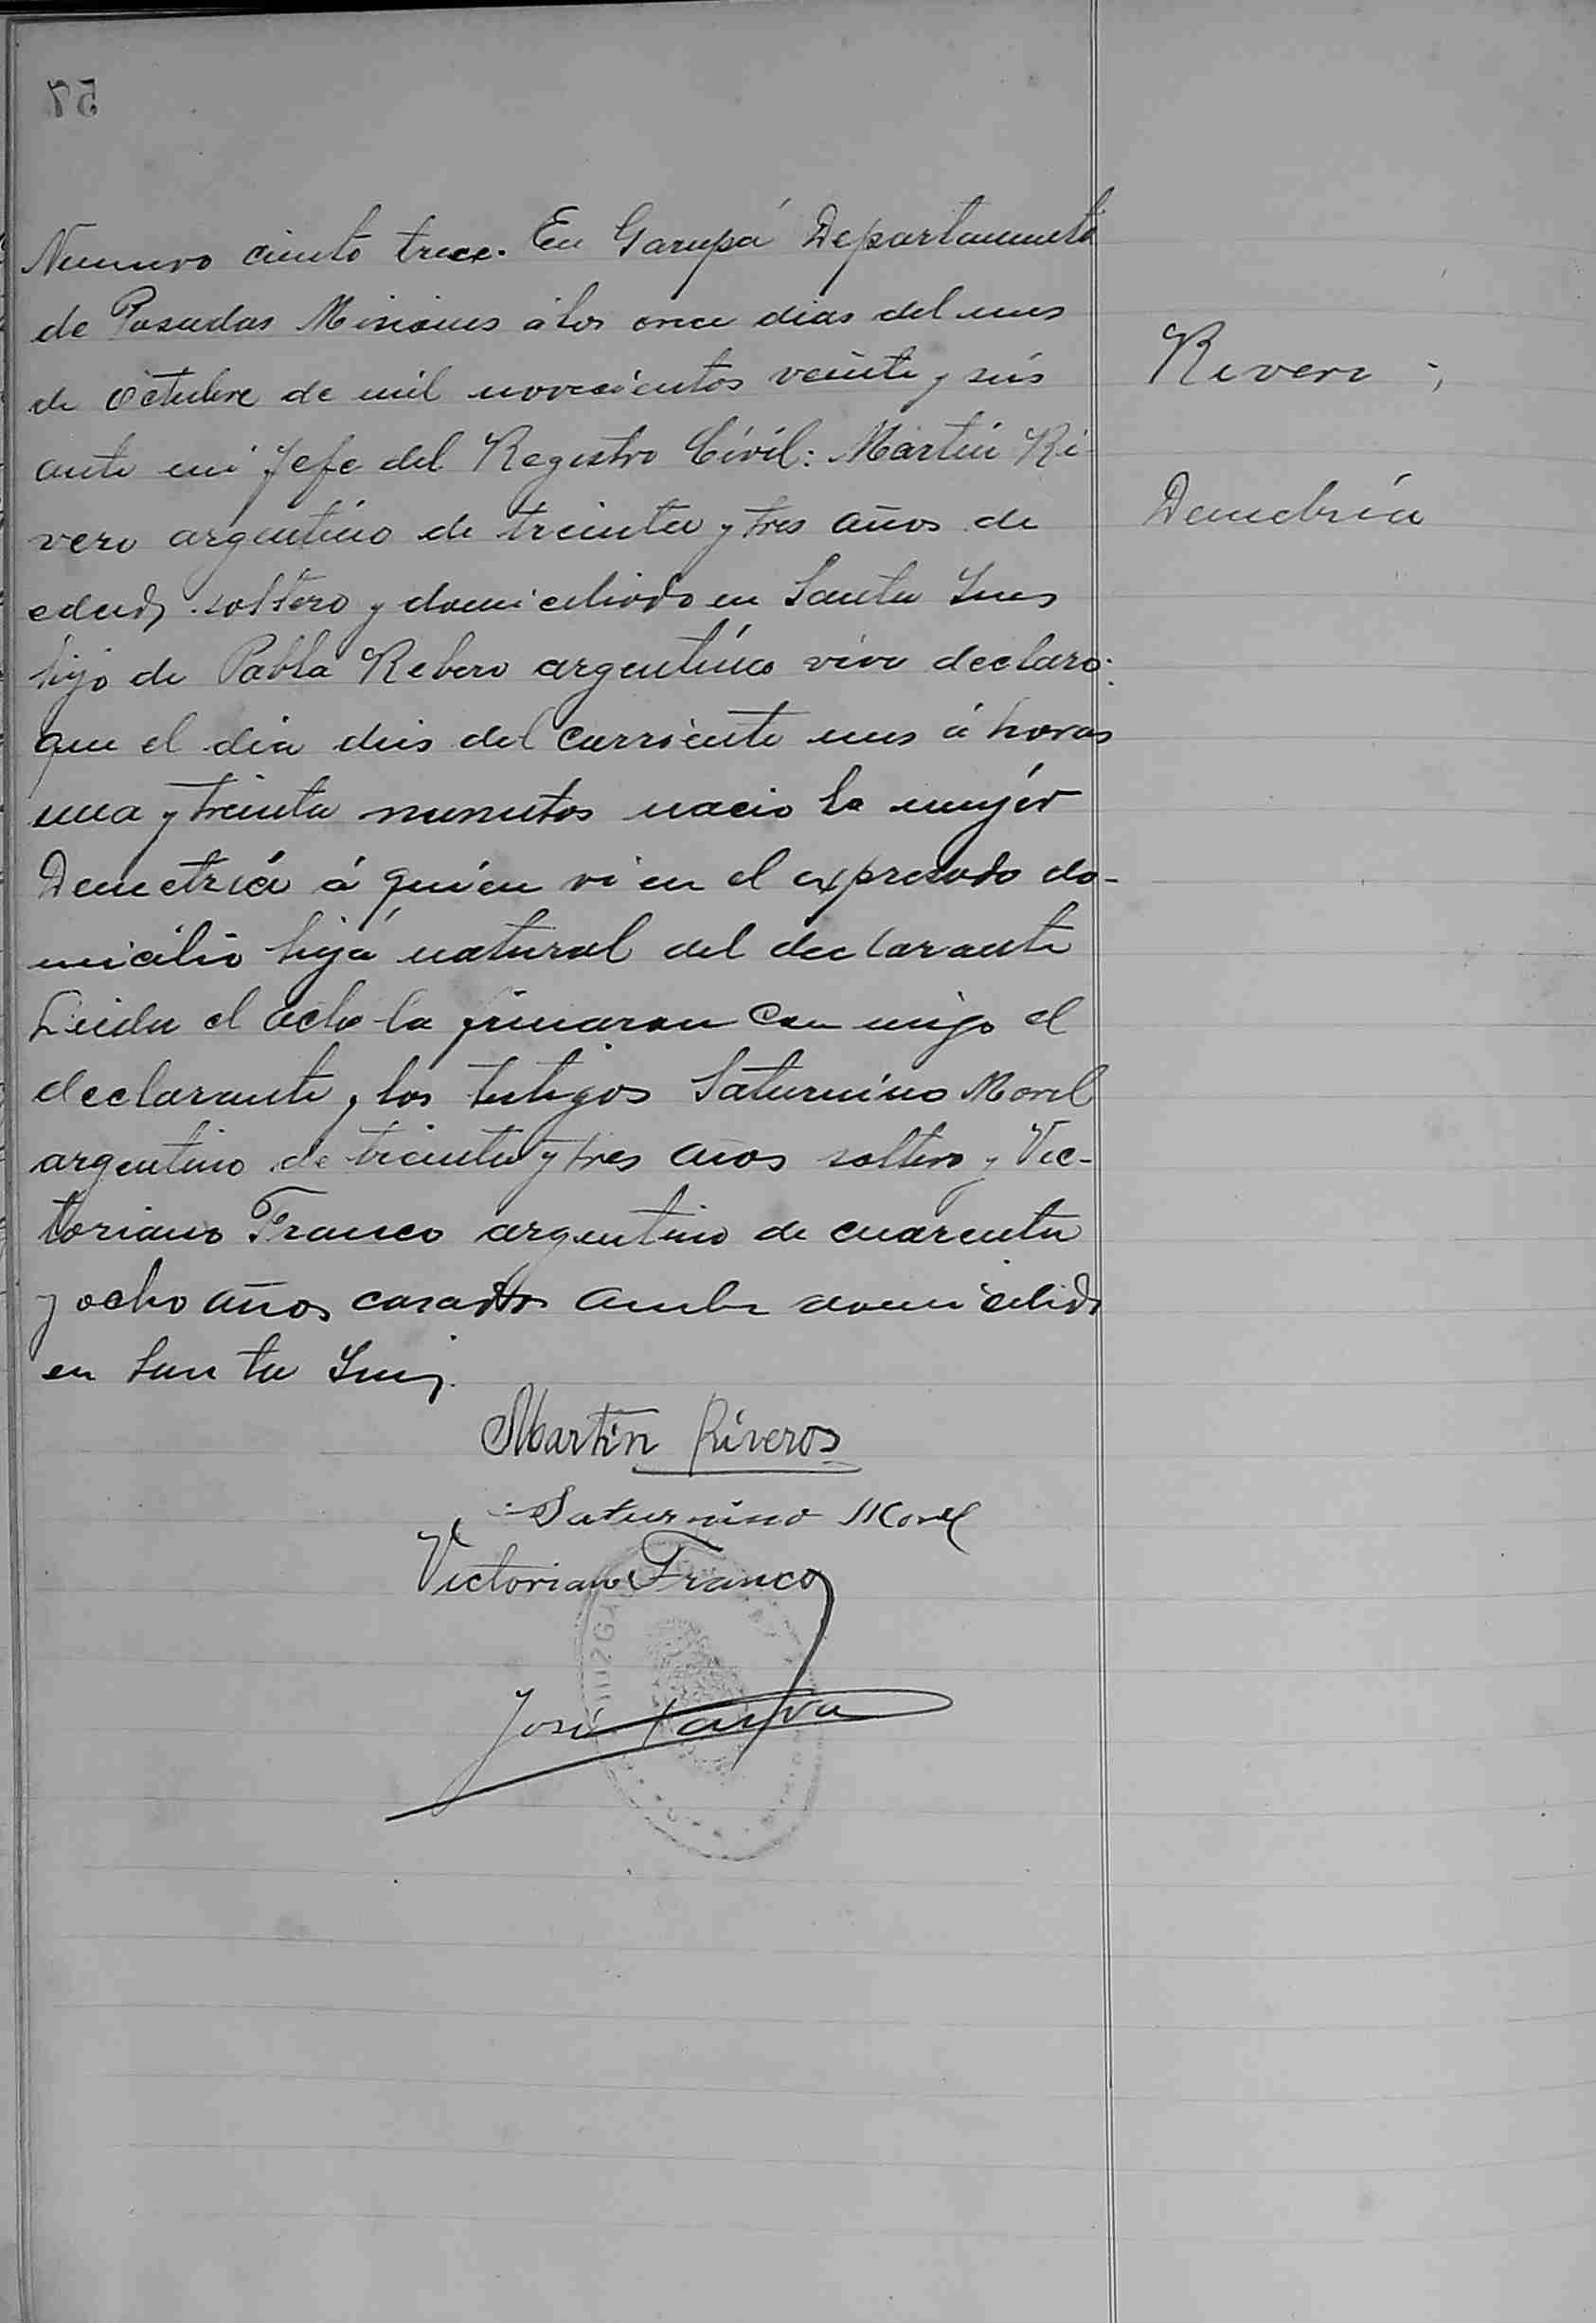 57
Numero ciento trece. En Garupá Departamento
de Posadas Misiones á los once dias del mes
de Octubre de mil novecientos veinte y séis
ante mi Jefe del Registro Civil: Martin Ri-
vero argentino de treinta y tres años de
edad, soltero y domiciliado en Santa Ines
hijo de Pabla Rebero argentina viva declaro:
que el dia deis del corriente mes á horas
una y treinta minutos nacio la mujér
Demetria á quién vi en el expresado do-
micilio hija natural del declarante
Leida el acta la firmaron con migo el
declarante, los testigos Saturnino Morel
argentino de treinta y tres años soltero y Vic-
toriano Franco argentino de cuarenta
y ocho años casado ambos domicilido
en Santa Ines.
Rivero
Demetria
Martin Riveros
Saturnino Morel
Victoriano Franco
José